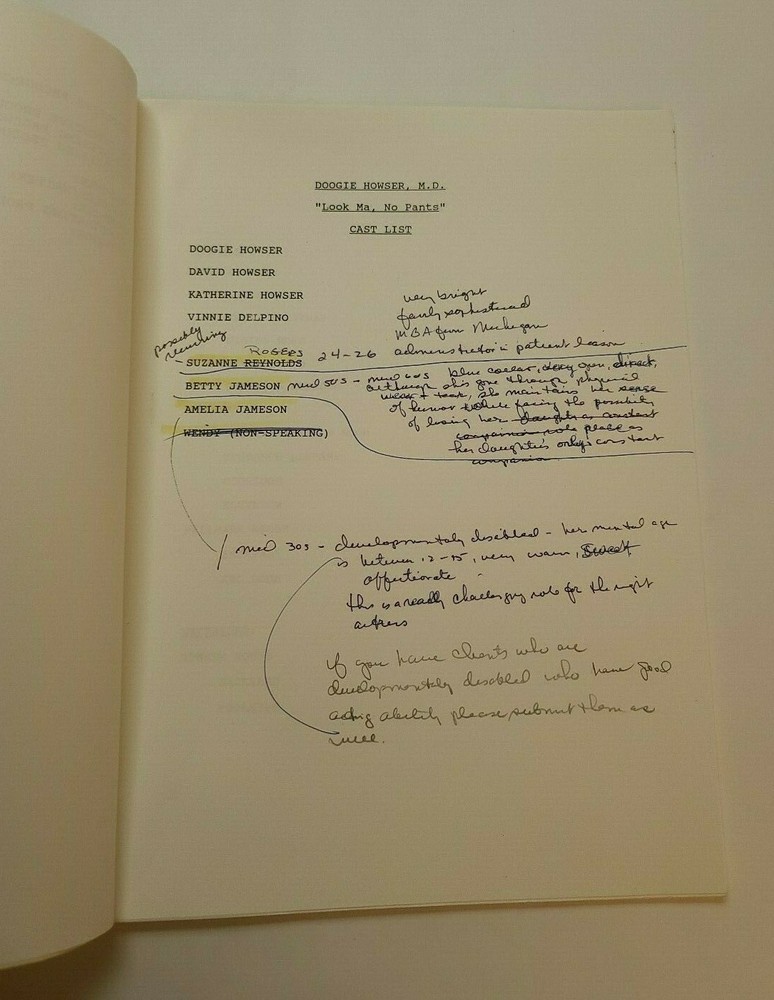 DOOGIE HOWSER, M.D.
"Look Ma, No Pants"
CAST LIST
DOOGIE HOWSER
DAVID HOWSER
KATHERINE HOWSER
VINNIE DELPINO
very bright
fairly sophisticated
MBA from Michigan
administration patient liason
possibly
recurring
ROGERS
SUZANNE REYNOLDS 24-26
BETTY JAMESON mid 50s - mid 60s blue collar, very open, direct,
although she's gone through physical
wear + tear, she maintains her sense
of humor while facing the possibility
of losing her daughter as constant
companion role place as
her daughter's only constant
companion
AMELIA JAMESON
WENDY (NON-SPEAKING)
mid 30s - developmentaly disabled - her mental age
is between 12-15, very warm, sweet
affectionate
this is a really challenging role for the right
actress
if you have clients who are
developmentaly disabled who have good
acting ability please submit them as
well.